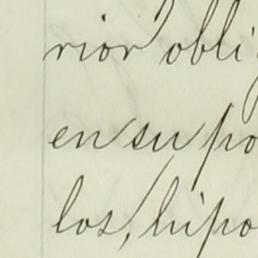 rior obli
en su po
los, hipo